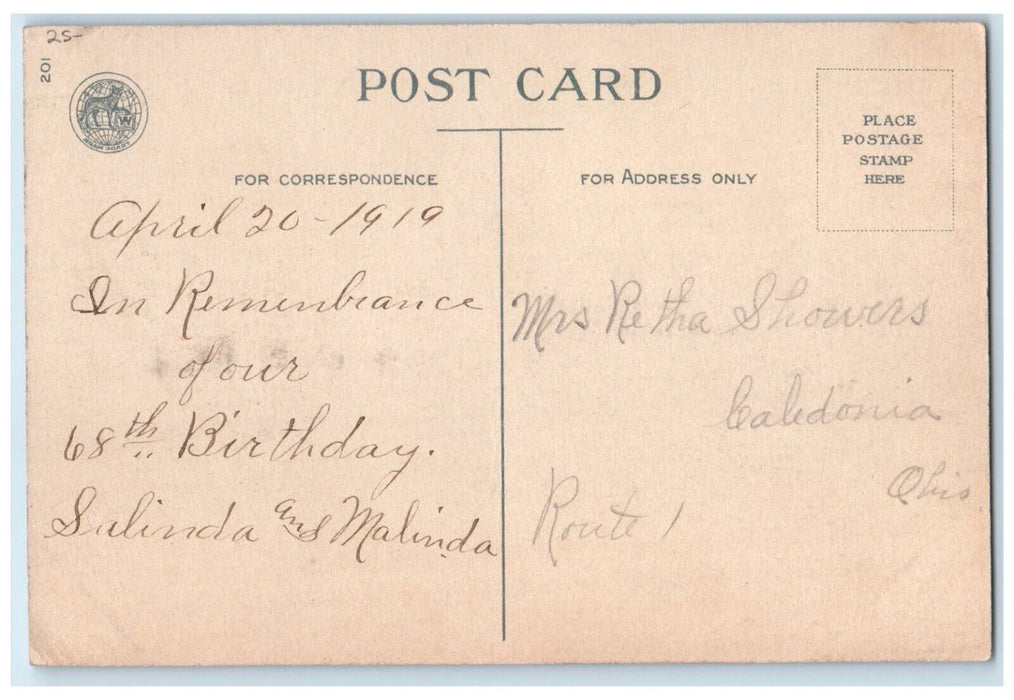 25-
201
POST CARD
W
PLACE
POSTAGE
STAMP
HERE
FOR CORRESPONDENCE
April 20-1919
In Remembrance
of our
68th Birthday.
Sulinda and Malinda
FOR ADDRESS ONLY
Mrs Retha Showers
Caledonia
Ohio
Route 1